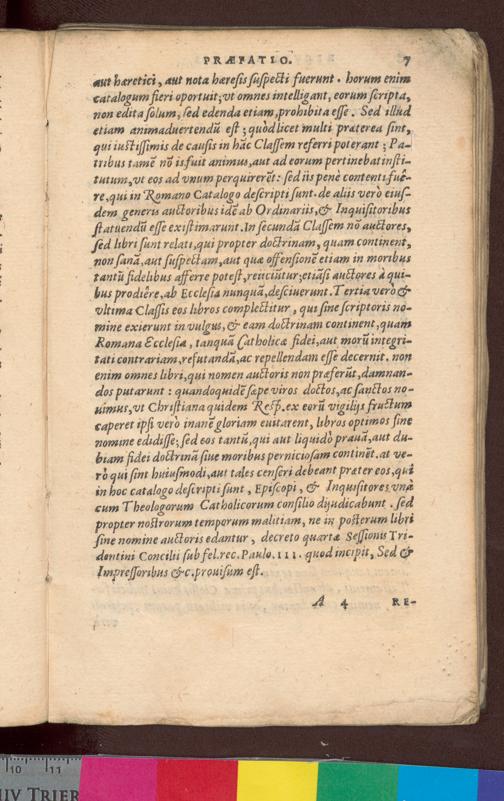 PRÆFATIO. 7
aut hæretici, aut nota hæresis suspecti fuerunt. horum enim
catalogum fieri oportuit; vt omnes intelligant, eorum scripta,
non edita solum, sed edenda etiam, prohibita esse. Sed illud
etiam animaduertendũ est; quòd licet multi præterea sint,
qui iustissimis de causis in hãc Classem referri poterant; Pa-
tribus tamẽ nõ is fuit animus, aut ad eorum pertinebat insti-
tutum, vt eos ad vnum perquirerẽt: sed iis penè contenti fuê-
re, qui in Romano Catalogo descripti sunt. de aliis verò eius-
dem generis auctoribus idẽ ab Ordinariis, & Inquisitoribus
statuendũ esse existimarunt. In secundã Classem nõ auctores,
sed libri sunt relati, qui propter doctrinam, quam continent,
non sanã, aut suspectam, aut quæ offensionẽ etiam in moribus
tantũ fidelibus afferre potest, reiiciũtur; etiãsi auctores à qui-
bus prodiêre, ab Ecclesia nunquã, desciuerunt. Tertia verò &
vltima Classis eos libros complectitur, qui sine scriptoris no-
mine exierunt in vulgus, & eam doctrinam continent, quam
Romana Ecclesia, tanquã Catholicæ fidei, aut morũ integri-
tati contrariam, refutandã, ac repellendam esse decernit. non
enim omnes libri, qui nomen auctoris non præferũt, damnan-
dos putarunt: quandoquidẽ sæpe viros doctos, ac sanctos no-
uimus, vt Christiana quidem Resp. ex eorũ vigiliis fructum
caperet ipsi verò inanẽ gloriam euitarent, libros optimos sine
nomine edidisse; sed eos tantũ, qui aut liquidò prauã, aut du-
biam fidei doctrinã siue moribus perniciosam continẽt. at ve-
rò qui sint huiusmodi, aut tales censeri debeant præter eos, qui
in hoc catalogo descripti sunt, Episcopi, & Inquisitores vnà
cum Theologorum Catholicorum consilio dijudicabunt. sed
propter nostrorum temporum malitiam, ne in posterum libri
sine nomine auctoris edantur, decreto quartæ Sessionis Tri-
dentini Concilii sub fel. rec. Paulo. III. quod incipit, Sed &
Impressoribus &c. prouisum est.
A 4 RE-
10 11
UNIV TRIER